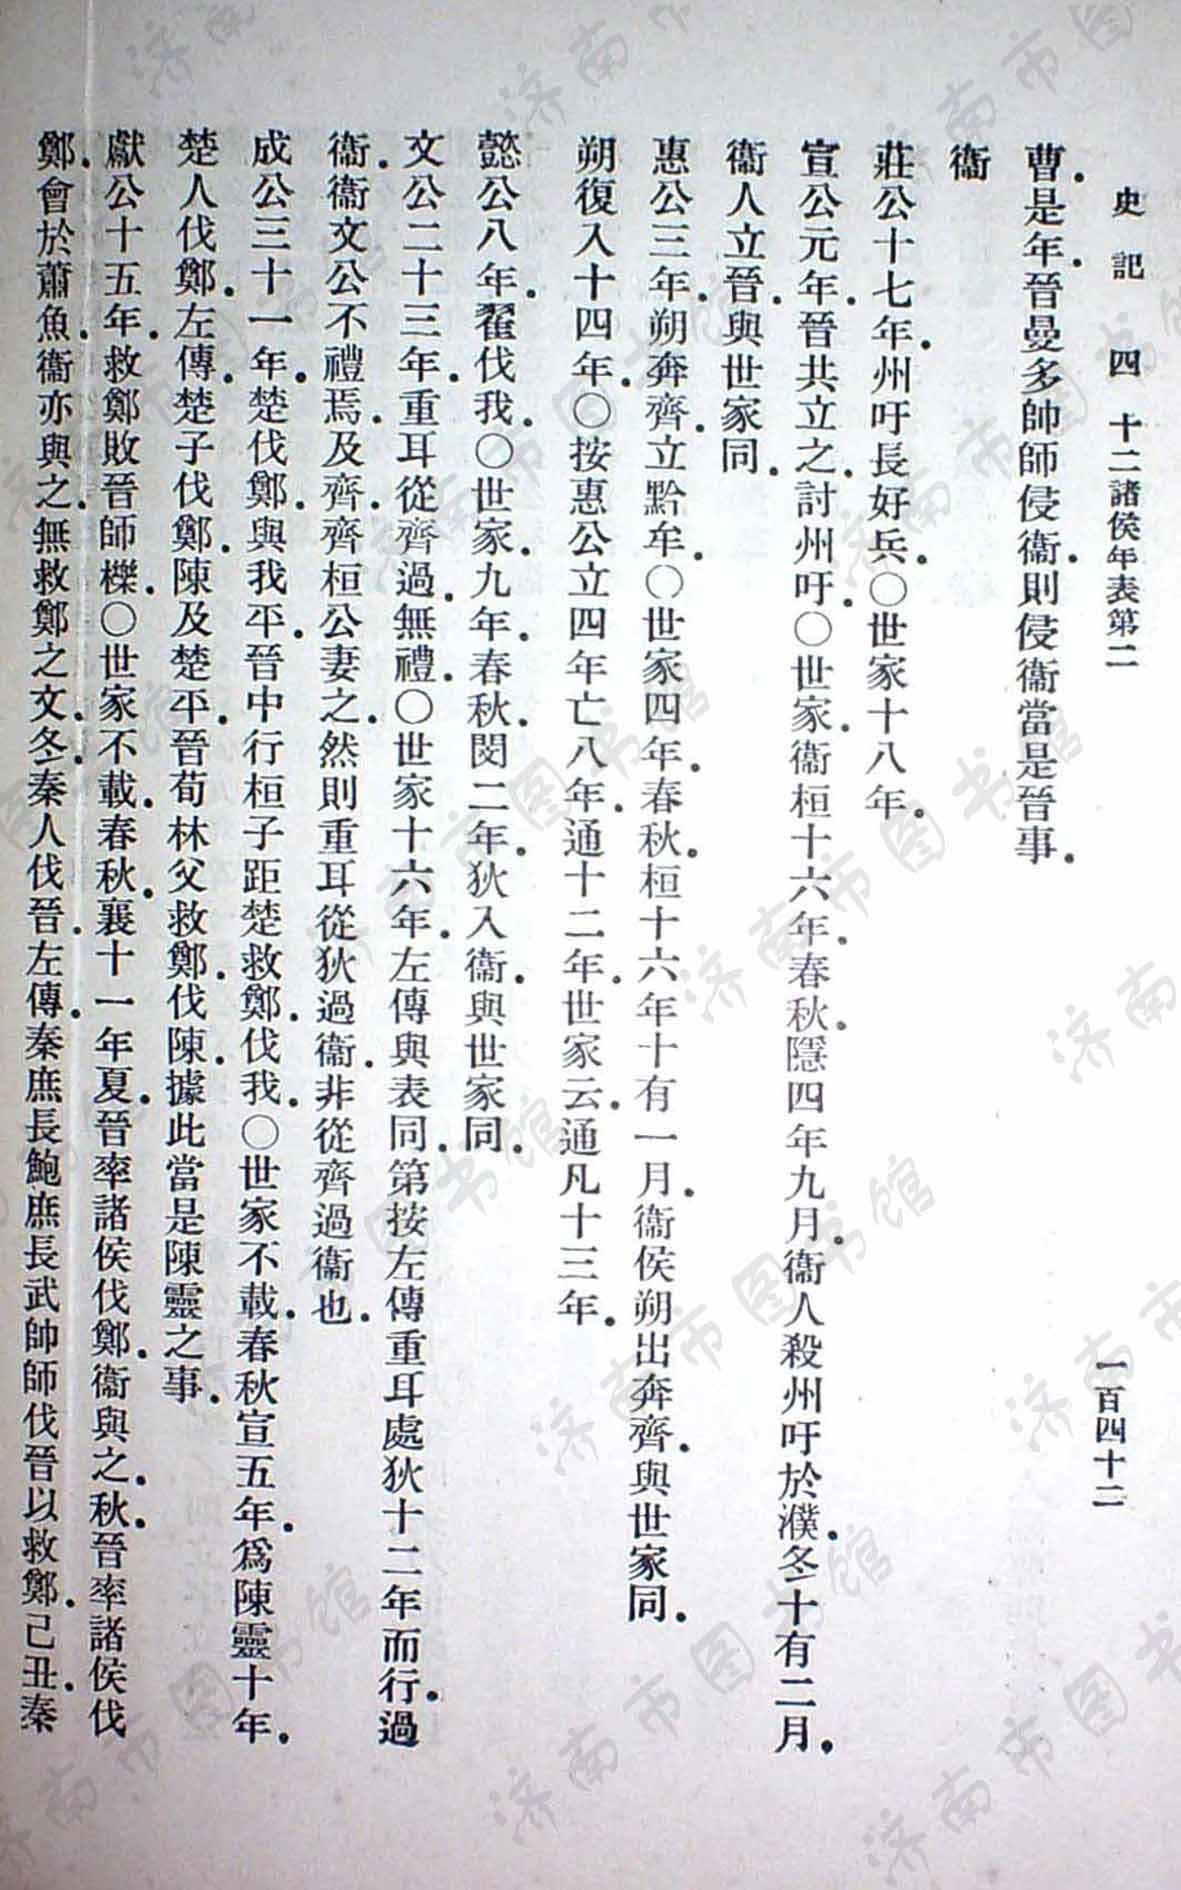 史記 四 十二諸侯年表第二 一百四十二
曹.是年.晉曼多帥師侵衞.則侵衞當是晉事.
衞
莊公十七年.州吁長好兵.〇世家十八年.
宣公元年.晉共立之.討州吁.〇世家.衞桓十六年.春秋.隱四年九月.衞人殺州吁於濮.冬十有二月.
衞人立晉.與世家同.
惠公三年.朔奔齊.立黔牟.〇世家四年.春秋.桓十六年十有一月.衞侯朔出奔齊.與世家同.
朔復入十四年.〇按惠公立四年亡八年.通十二年.世家云.通凡十三年.
懿公八年.翟伐我.〇世家.九年.春秋.閔二年.狄入衞.與世家同.
文公二十三年.重耳從齊過.無禮.〇世家十六年.左傳與表同.第按左傳重耳處狄十二年而行.過
衞.衞文公不禮焉.及齊.齊桓公妻之.然則重耳從狄過衞.非從齊過衞也.
成公三十一年.楚伐鄭.與我平.晉中行桓子距楚救鄭.伐我.〇世家不載.春秋宣五年.爲陳靈十年.
楚人伐鄭.左傳.楚子伐鄭.陳及楚平.晉荀林父救鄭.伐陳.據此當是陳靈之事.
獻公十五年.救鄭敗晉師櫟.〇世家不載.春秋.襄十一年夏.晉率諸侯伐鄭.衞與之.秋.晉率諸侯伐
鄭.會於蕭魚.衞亦與之.無救鄭之文.冬.秦人伐晉.左傳.秦庶長鮑庶長武帥師伐晉以救鄭.己丑.秦